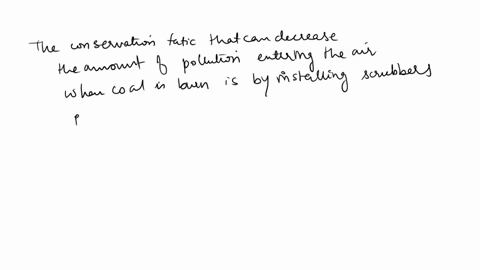 The conservation tatic that can decrease
the amount of pollution entering the air
when coal is burn is by installing scrubbers
p